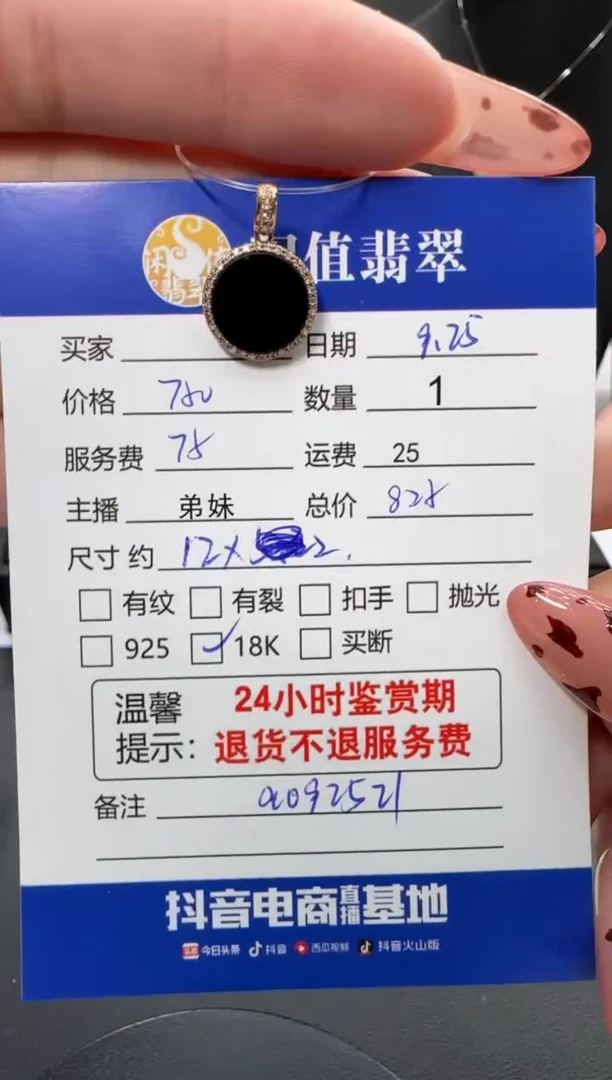 闲值翡翠
值翡翠
买家 日期 9.25
价格 750 数量 1
服务费 75 运费 25
主播 弟妹 总价
尺寸 约 12x 2.
有纹 有裂 扣手 抛光
925 18K 买断
温馨 24小时鉴赏期
提示： 退货不退服务费
备注
抖音电商直播基地
头条 今日头条 抖音 西瓜视频 抖音火山版